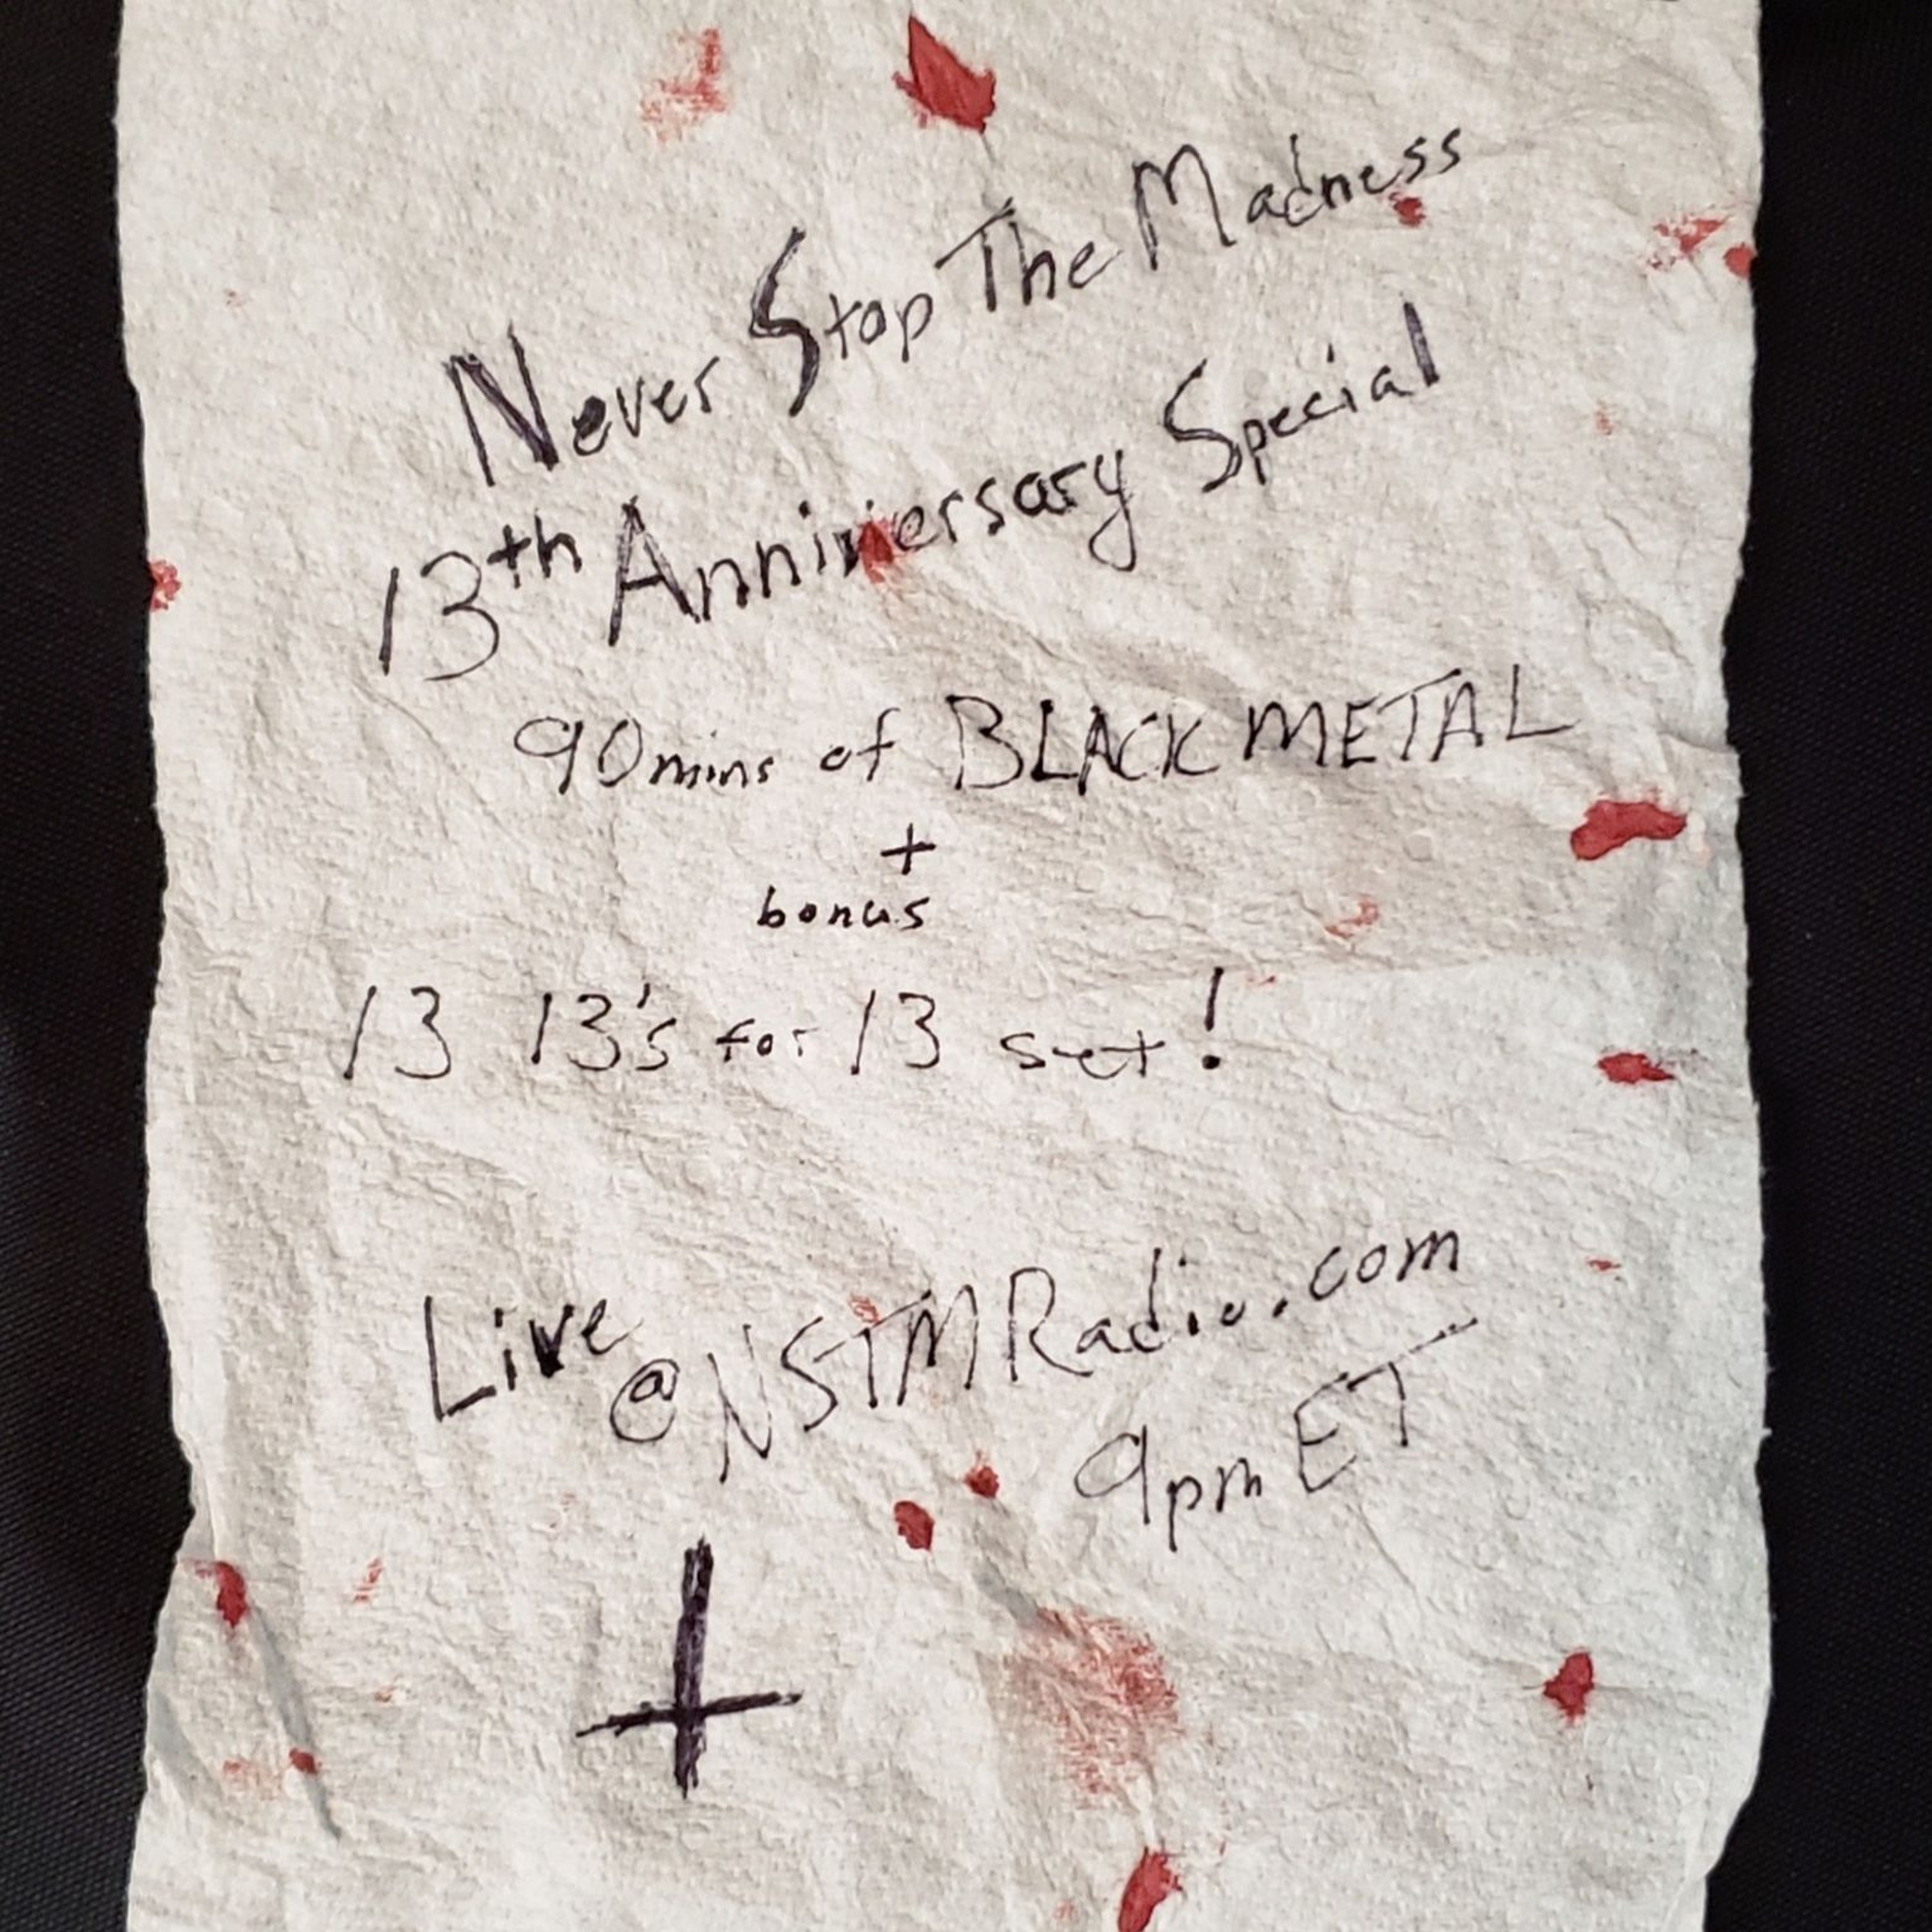 Never Stop The Madness
13th Anniversary Special
90mins of BLACK METAL
+
bonus
13 13's for 13 set!
Live @NSTMRadio.com
9pm ET